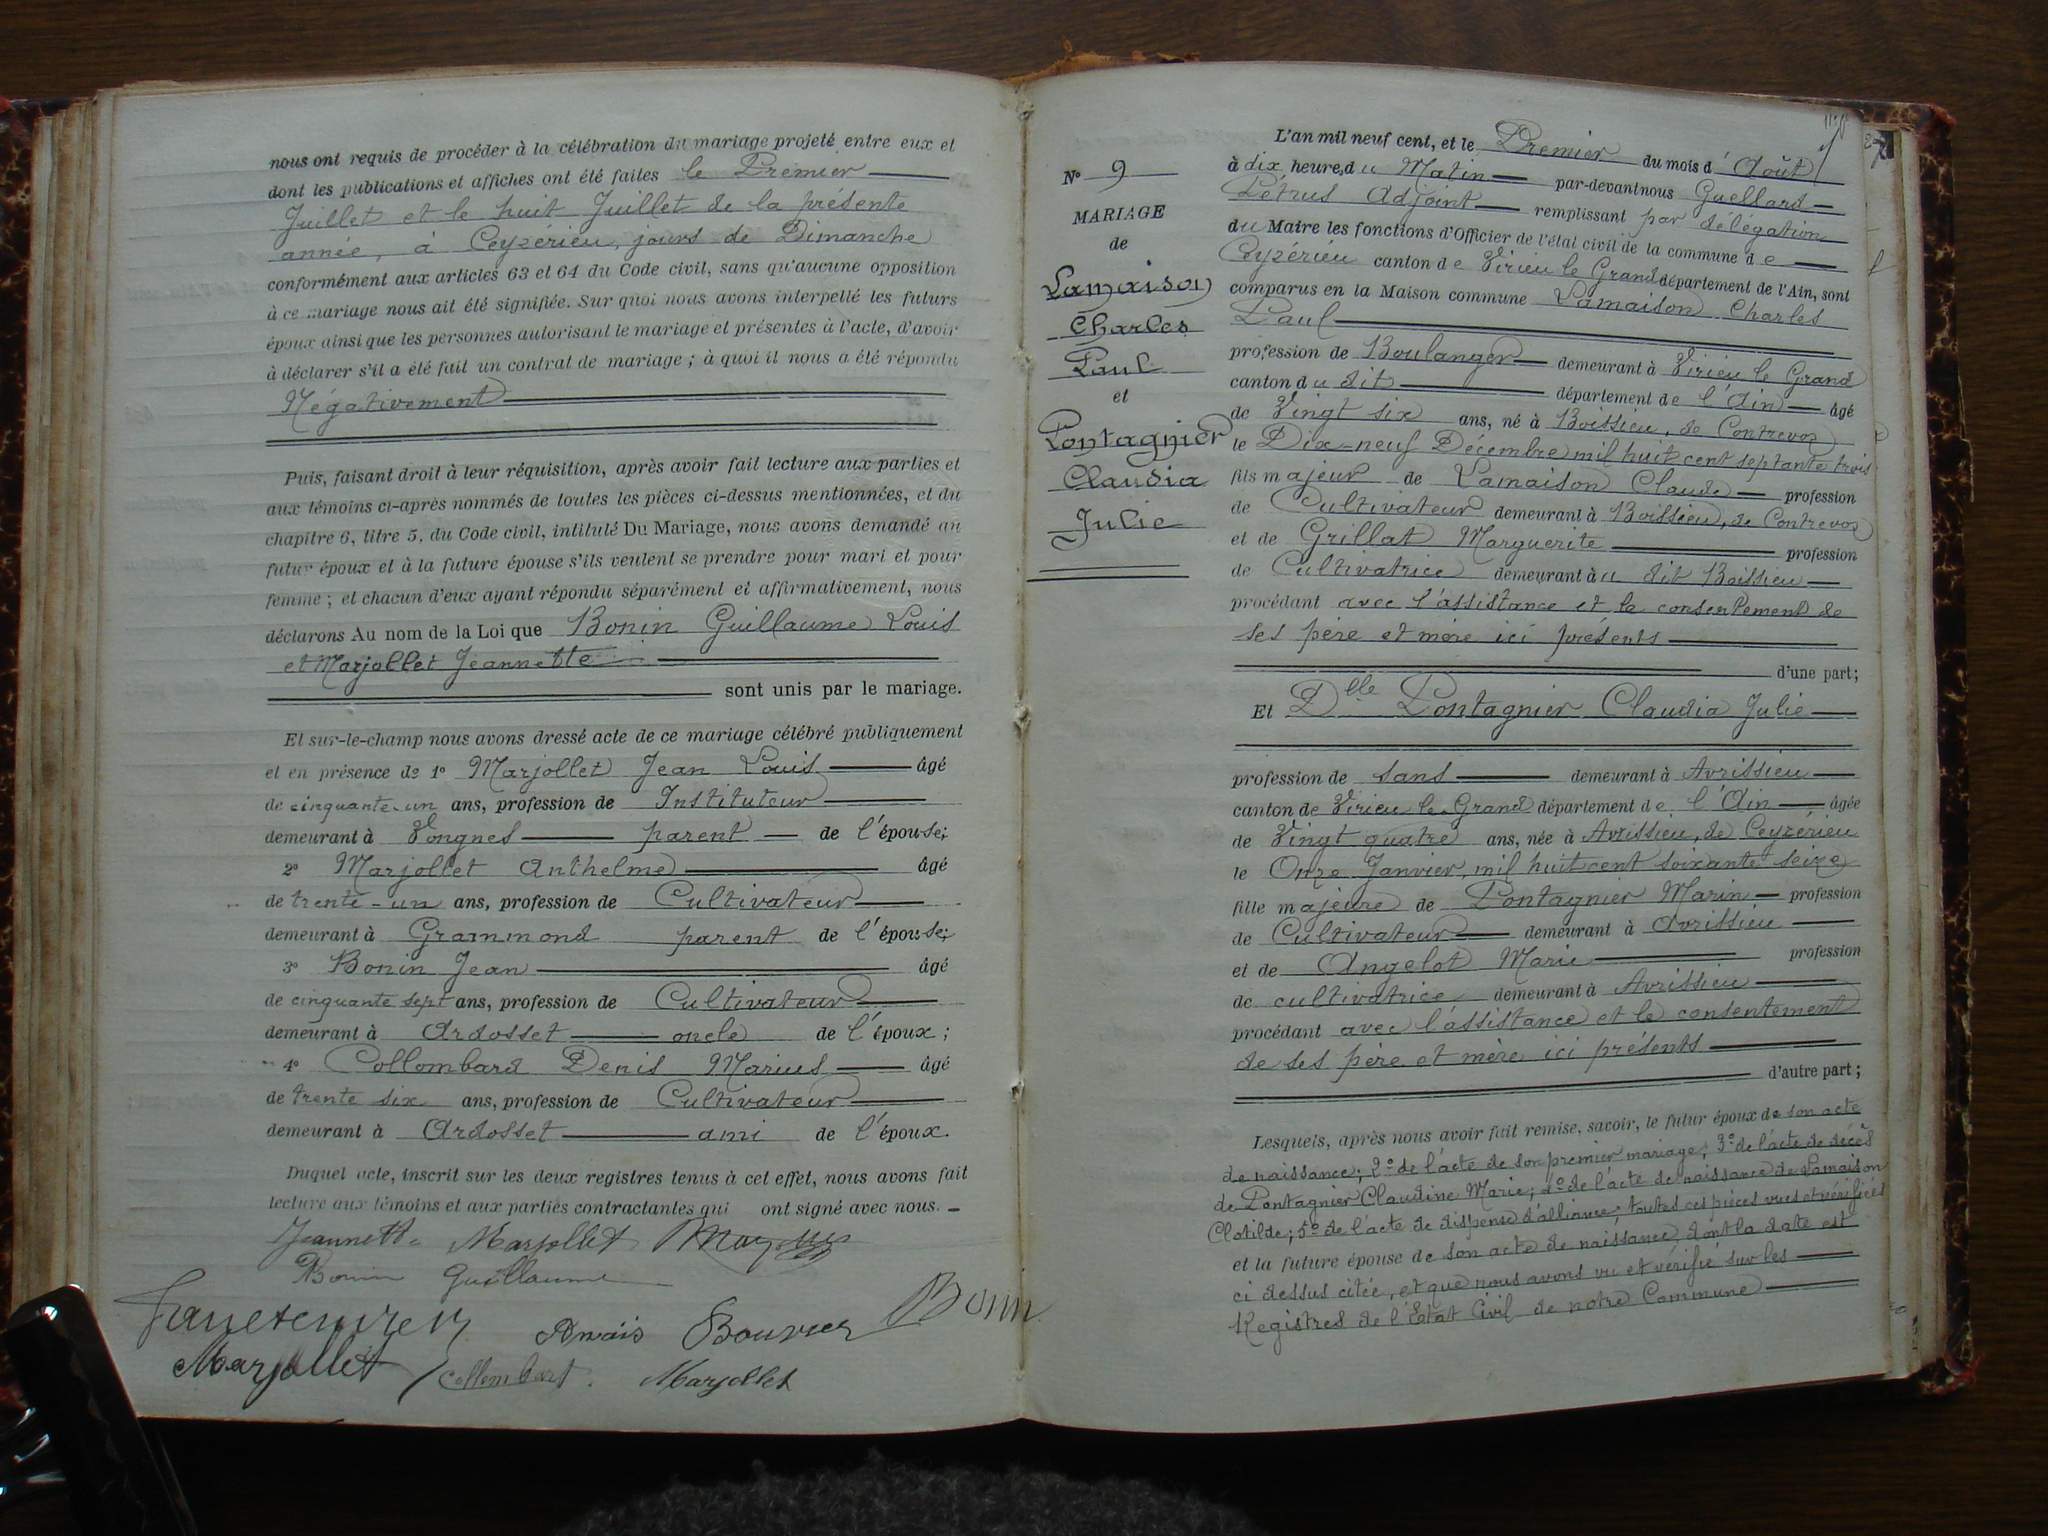 nous ont requis de procéder à la célébration du mariage projeté entre eux et
dont les publications et affiches ont été faites le Premier
Juillet et le huit Juillet de la présente
année, à Ceyzérieu, jours de Dimanche
conformément aux articles 63 et 64 du Code civil, sans qu'aucune opposition
à ce mariage nous ait été signifiée. Sur quoi nous avons interpellé les futurs
époux ainsi que les personnes autorisant le mariage et présentes à l'acte, d'avoir
à déclarer s'il a été fait un contrat de mariage ; à quoi il nous a été répondu
Négativement
Puis, faisant droit à leur réquisition, après avoir fait lecture aux parties et
aux témoins ci-après nommés de toutes les pièces ci-dessus mentionnées, et du
chapitre 6, titre 5, du Code civil, intitulé Du Mariage, nous avons demandé au
futur époux et à la future épouse s'ils veulent se prendre pour mari et pour
femme ; et chacun d'eux ayant répondu séparément et affirmativement, nous
déclarons Au nom de la Loi que Bonin Guillaume Louis
et Marjollet Jeannette
sont unis par le mariage.
Et sur-le-champ nous avons dressé acte de ce mariage célébré publiquement
et en présence de 1° Marjollet Jean Louis âgé
de cinquante-un ans, profession de Instituteur
demeurant à Vongnes parent de l'épouse;
2° Marjollet Anthelme âgé
de trente-un ans, profession de Cultivateur
demeurant à Grammond parent de l'épouse;
3° Bonin Jean âgé
de cinquante sept ans, profession de Cultivateur
demeurant à Ardosset oncle de l'époux ;
4° Collombard Denis Marius âgé
de trente six ans, profession de Cultivateur
demeurant à Ardosset ami de l'époux.
Duquel acte, inscrit sur les deux registres tenus à cet effet, nous avons fait
lecture aux témoins et aux parties contractantes qui ont signé avec nous.
Jeannette Marjollet
Bonin Guillaume
Anaïs Bouvier Bonin
Marjollet Collombard. Marjollet
27
N° 9
MARIAGE
de
Lamaison
Charles
Paul
et
Pontagnier
Claudia
Julie
L'an mil neuf cent, et le Premier du mois d'Août
à dix heures du Matin par-devant nous Guellard
Pétrus Adjoint remplissant par délégation
du Maire les fonctions d'Officier de l'état civil de la commune de
Ceyzérieu canton de Virieu le Grand département de l'Ain, sont
comparus en la Maison commune Lamaison Charles
Paul
profession de Boulanger demeurant à Virieu le Grand
canton du dit département de l'Ain âgé
de Vingt six ans, né à Boissieu, de Contrevoz
le Dix-neuf Décembre mil huit cent septante trois
fils majeur de Lamaison Claude profession
de Cultivateur demeurant à Boissieu, de Contrevoz
et de Grillat Marguerite profession
de Cultivatrice demeurant au dit Boissieu
procédant avec l'assistance et le consentement de
ses père et mère ici présents
d'une part;
Et Dlle Pontagnier Claudia Julie
profession de sans demeurant à Avrissieu
canton de Virieu le Grand département de l'Ain âgée
de Vingt quatre ans, née à Avrissieu, de Ceyzérieu
le Onze Janvier, mil huit cent soixante seize
fille majeure de Pontagnier Marin profession
de Cultivateur demeurant à Avrissieu
et de Angelot Marie profession
de cultivatrice demeurant à Avrissieu
procédant avec l'assistance et le consentement
de ses père et mère ici présents
d'autre part ;
Lesquels, après nous avoir fait remise, savoir, le futur époux de son acte
de naissance ; 2° de l'acte de son premier mariage ; 3° de l'acte de décès
de Pontagnier Claudine Marie ; 4° de l'acte de naissance de Lamaison
Clotilde ; 5° de l'acte de dispense d'alliance ; toutes ces pièces vues et vérifiées
et la future épouse de son acte de naissance, dont la date est
ci dessus citée, et que nous avons vu et vérifié sur les
Registres de l'Etat Civil de notre Commune